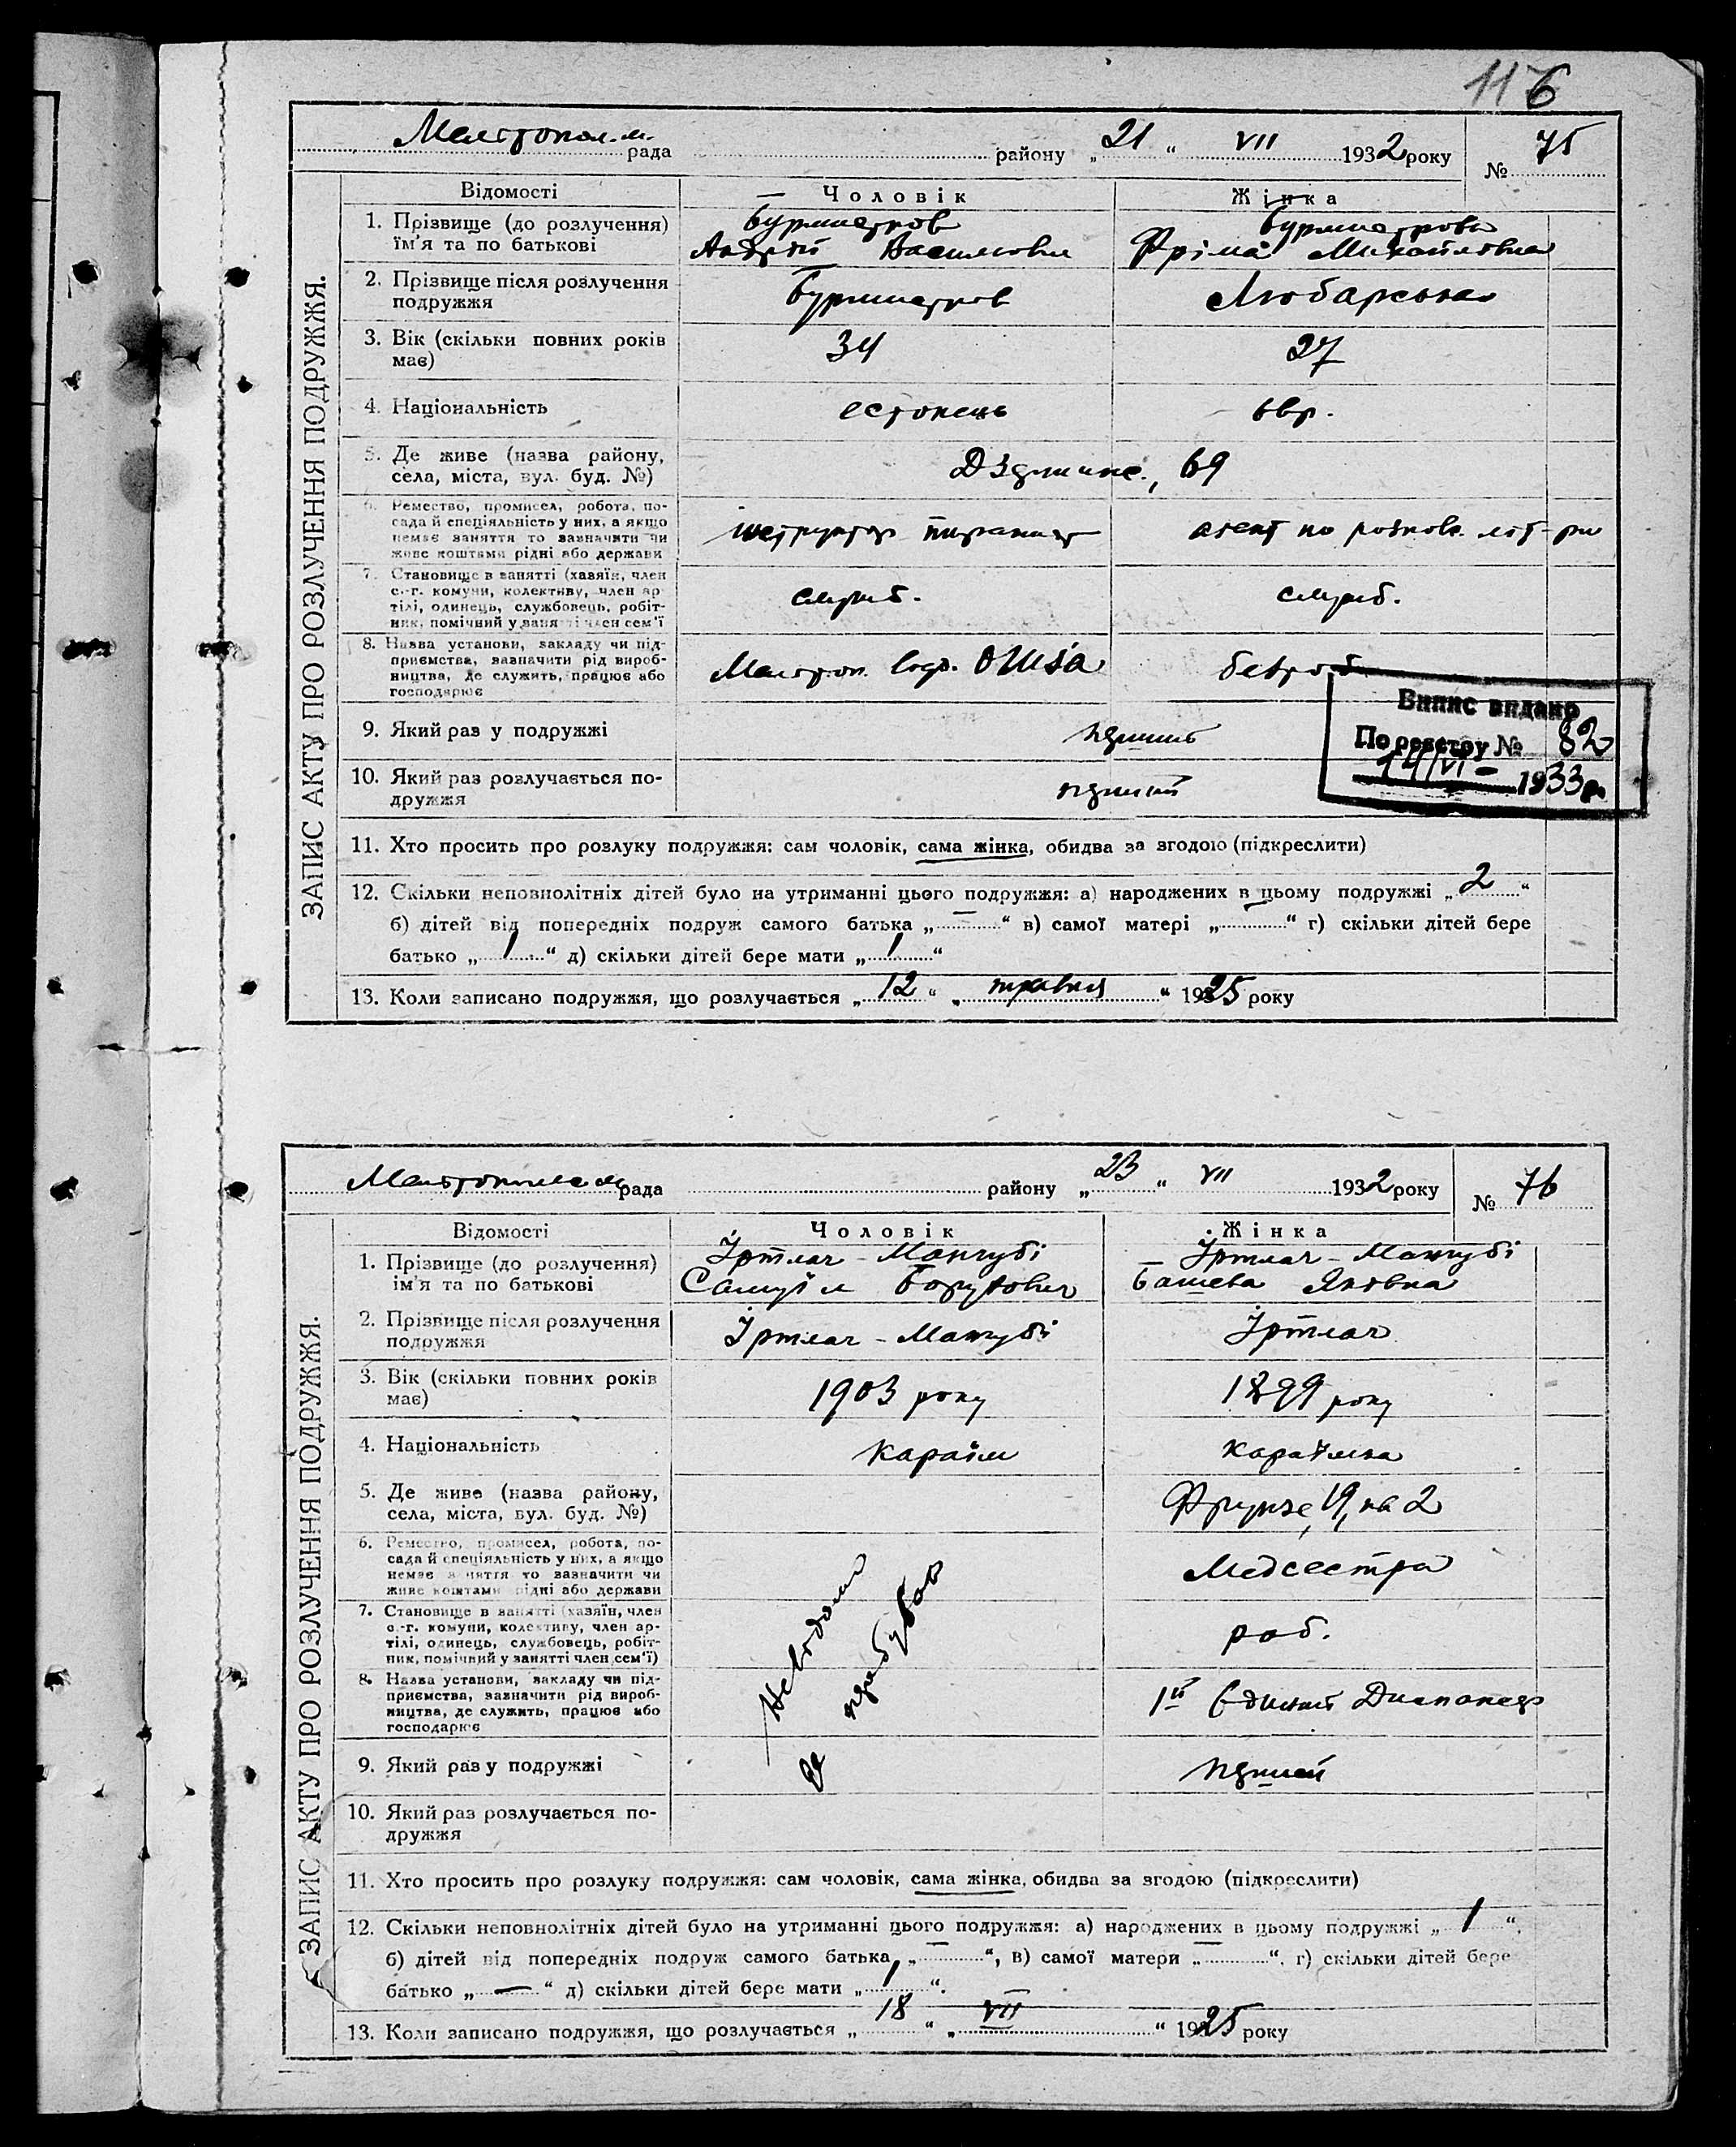 116
Мелітопол. м. рада района „21“ VII 1932 року № 75
ЗАПИС АКТУ ПРО РОЗЛУЧЕННЯ ПОДРУЖЖЯ.
Відомості Чоловік Жінка
1. Прізвище (до розлучення) їм'я та по батькові
Бурмистров
Андрій Васильович
Бурмистрова
Фріма Михайлівна
2. Прізвище після розлучення подружжя
Бурмистров Любарська
3. Вік (скільки повних років має)
34 27
4. Національність естонець євр.
5. Де живе (назва району, села, міста, вул. буд. №)
Дзержинс., 69
6. Ремество, промисел, робота, по-
сада й спеціяльність у них, а якщо
немає заняття то зазначити чи
живе коштами рідні або держави
агент по розповс. літ-ри
7. Становище в занятті (хазяїн, член
с.-г. комуни, колективу, член ар-
тілі, одинець, службовець, робіт-
ник, помічний у занятті член сем'ї
служб. служб.
8. Назва установи, закладу чи під-
приємства, зазначити рід вироб-
ництва, де служить, працює або
господарює
безроб.
Випис видано
По реєстру № 82
14/VI - 1933 р.
9. Який раз у подружжі перший
10. Який раз розлучається по-
дружжя перший
11. Хто просить про розлуку подружжя: сам чоловік, сама жінка, обидва за згодою (підкреслити)
12. Скільки неповнолітніх дітей було на утриманні цього подружжя: а) народжених в цьому подружжі „2“
б) дітей від попередніх подруж самого батька „—“ в) самої матері „—“ г) скільки дітей бере
батько „1“ д) скільки дітей бере мати „1“
13. Коли записано подружжя, що розлучається „12“ „травня“ 1925 року
Мелітопільська м. рада району „23“ VII 1932 року № 76
ЗАПИС АКТУ ПРО РОЗЛУЧЕННЯ ПОДРУЖЖЯ.
Відомості Чоловік Жінка
1. Прізвище (до розлучення) ім'я та по батькові
Іртлач - Мангубі
Самуїл Борухович
Іртлач - Мангубі
Башева Яківна
2. Прізвище після розлучення подружжя
Іртлач - Мангубі Іртлач
3. Вік (скільки повних років має)
1903 року 1899 року
4. Національність караїм караїмка
5. Де живе (назва району, села, міста, вул. буд. №)
Фрунзе, 19, кв 2
6. Ремество, промисел, робота, по-
сада й спеціяльність у них, а якщо
немає заняття то зазначити чи
живе коштами рідні або держави
Медсестра
7. Становище в занятті (хазяїн, член
с.-г. комуни, колективу, член ар-
тілі, одинець, службовець, робіт-
ник, помічний у занятті член сем'ї)
роб.
Невідомо
де перебував
8. Назва установи, закладу чи під-
приємства, зазначити рід вироб-
ництва, де служить, працює або
господарює
1й Єдиний Диспансер
9. Який раз у подружжі перший
10. Який раз розлучається по-
дружжя
11. Хто просить про розлуку подружжя: сам чоловік, сама жінка, обидва за згодою (підкреслити)
12. Скільки неповнолітніх дітей було на утриманні цього подружжя: а) народжених в цьому подружжі „1“,
б) дітей від попередніх подруж самого батька „—“, в) самої матери „—“. г) скільки дітей бере
батько „—“ д) скільки дітей бере мати „1“.
13. Коли записано подружжя, що розлучається „18“ „VII“ 1925 року